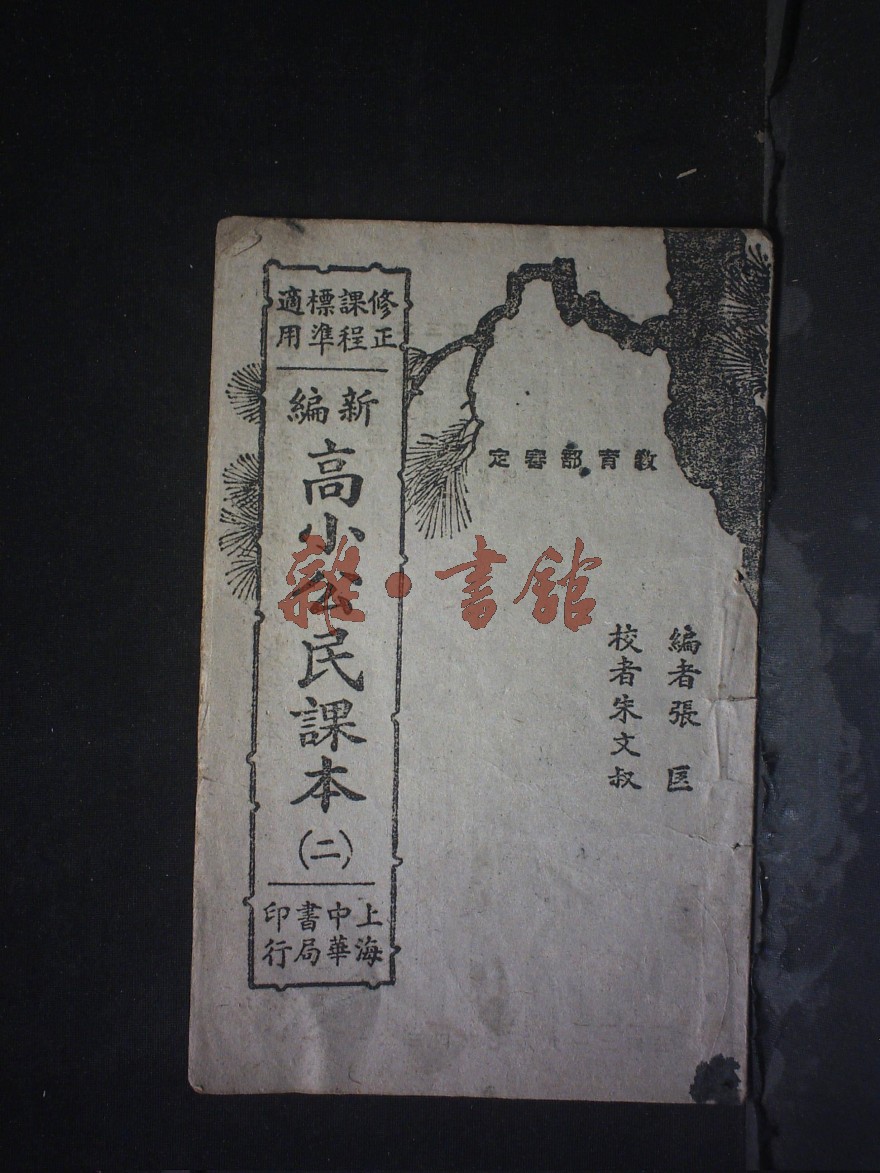 教育部審定
編者張匡
校者朱文叔
修正課程標準適用
新編
高小公民課本(二)
上海中華書局印行
雜·書館